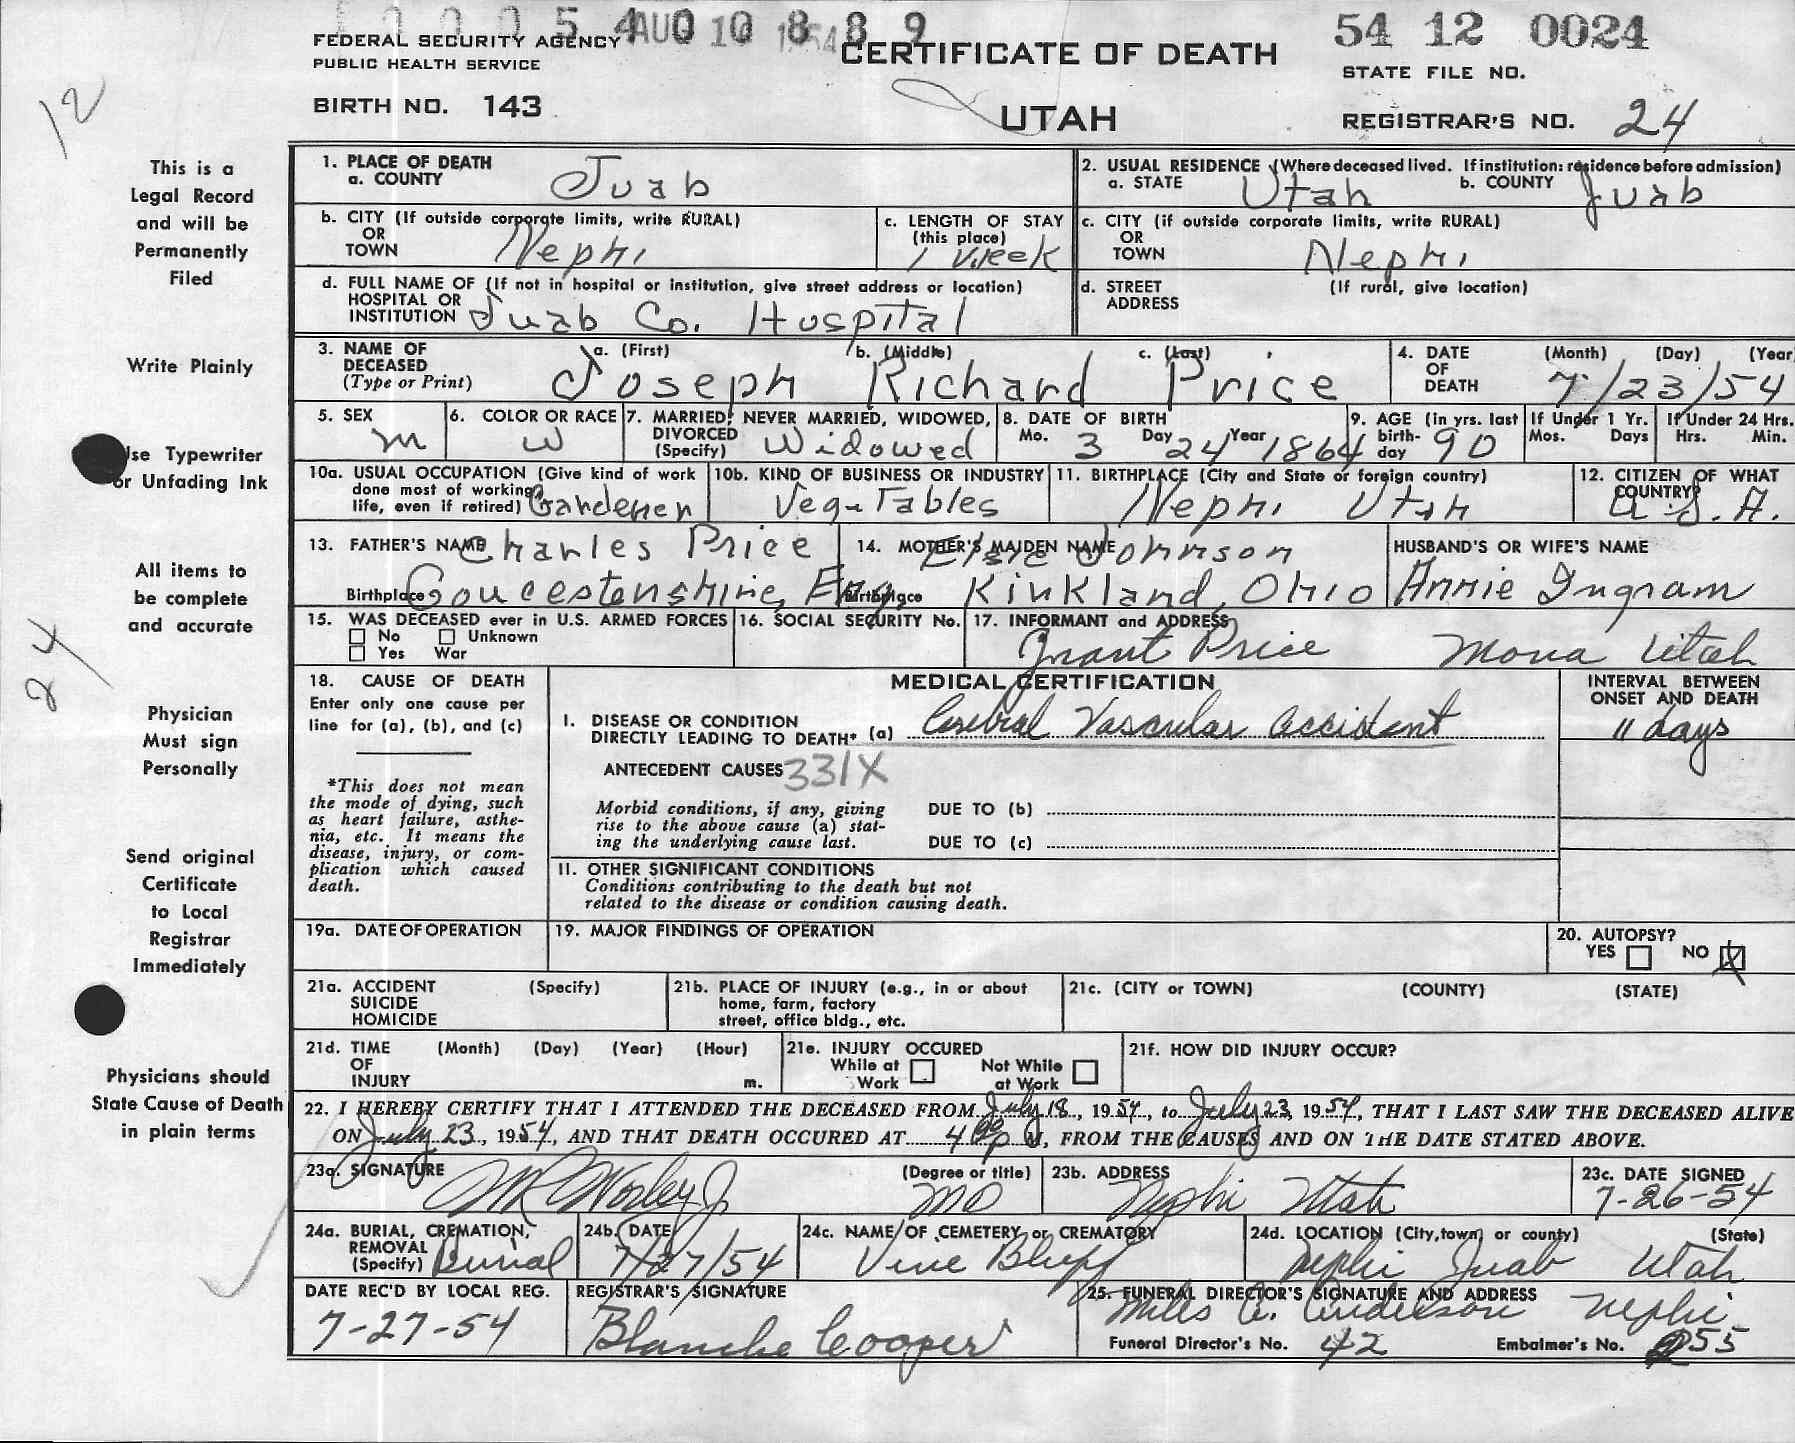 0 0 0 5 4 0 0 8 8 9
AUG 10 1954
54 12 0024
FEDERAL SECURITY AGENCY
PUBLIC HEALTH SERVICE
CERTIFICATE OF DEATH
STATE FILE NO.
BIRTH NO. 143
UTAH
REGISTRAR'S NO. 24
12
24
This is a
Legal Record
and will be
Permanently
Filed
Write Plainly
Use Typewriter
or Unfading Ink
All items to
be complete
and accurate
Physician
Must sign
Personally
Send original
Certificate
to Local
Registrar
Immediately
Physicians should
State Cause of Death
in plain terms
1. PLACE OF DEATH
a. COUNTY Juab
2. USUAL RESIDENCE (Where deceased lived. If institution: residence before admission)
a. STATE Utah b. COUNTY Juab
b. CITY (If outside corporate limits, write RURAL)
OR
TOWN Nephi
c. LENGTH OF STAY
(this place)
1 Week
c. CITY (if outside corporate limits, write RURAL)
OR
TOWN Nephi
d. FULL NAME OF (If not in hospital or institution, give street address or location)
HOSPITAL OR
INSTITUTION Juab Co. Hospital
d. STREET (If rural, give location)
ADDRESS
3. NAME OF a. (First) b. (Middle) c. (Last)
DECEASED
(Type or Print) Joseph Richard Price
4. DATE (Month) (Day) (Year
OF
DEATH 7/23/54
5. SEX
M
6. COLOR OR RACE
W
7. MARRIED, NEVER MARRIED, WIDOWED,
DIVORCED
(Specify) Widowed
8. DATE OF BIRTH
Mo. 3 Day 24 Year 1864
9. AGE (in yrs. last
birth-
day 90
If Under 1 Yr.
Mos. Days
If Under 24 Hrs.
Hrs. Min.
10a. USUAL OCCUPATION (Give kind of work
done most of working
life, even if retired) Gardener
10b. KIND OF BUSINESS OR INDUSTRY
Vegetables
11. BIRTHPLACE (City and State or foreign country)
Nephi Utah
12. CITIZEN OF WHAT
COUNTRY?
U.S.A.
13. FATHER'S NAME Charles Price
Birthplace Goucestershire, Eng.
14. MOTHER'S MAIDEN NAME Elsie Johnson
Birthplace Kirkland, Ohio
HUSBAND'S OR WIFE'S NAME
Annie Ingram
15. WAS DECEASED ever in U.S. ARMED FORCES
No Unknown
Yes War
16. SOCIAL SECURITY No.
17. INFORMANT and ADDRESS
Grant Price Mona Utah
18. CAUSE OF DEATH
Enter only one cause per
line for (a), (b), and (c)
*This does not mean
the mode of dying, such
as heart failure, asthe-
nia, etc. It means the
disease, injury, or com-
plication which caused
death.
MEDICAL CERTIFICATION
I. DISEASE OR CONDITION
DIRECTLY LEADING TO DEATH* (a) Cerebral Vascular accident
ANTECEDENT CAUSES 331X
Morbid conditions, if any, giving
rise to the above cause (a) stat-
ing the underlying cause last.
DUE TO (b)
DUE TO (c)
II. OTHER SIGNIFICANT CONDITIONS
Conditions contributing to the death but not
related to the disease or condition causing death.
INTERVAL BETWEEN
ONSET AND DEATH
11 days
19a. DATE OF OPERATION
19. MAJOR FINDINGS OF OPERATION
20. AUTOPSY?
YES NO X
21a. ACCIDENT (Specify)
SUICIDE
HOMICIDE
21b. PLACE OF INJURY (e.g., in or about
home, farm, factory
street, office bldg., etc.
21c. (CITY or TOWN) (COUNTY) (STATE)
21d. TIME (Month) (Day) (Year) (Hour)
OF
INJURY m.
21e. INJURY OCCURED
While at Not While
Work at Work
21f. HOW DID INJURY OCCUR?
22. I HEREBY CERTIFY THAT I ATTENDED THE DECEASED FROM July 18, 1954, to July 23, 1954, THAT I LAST SAW THE DECEASED ALIVE
ON July 23, 1954, AND THAT DEATH OCCURED AT 4 00 P M, FROM THE CAUSES AND ON THE DATE STATED ABOVE.
23a. SIGNATURE (Degree or title)
Worley Jr MD
23b. ADDRESS
Nephi Utah
23c. DATE SIGNED
7-26-54
24a. BURIAL, CREMATION,
REMOVAL
(Specify) Burial
24b. DATE
7/27/54
24c. NAME OF CEMETERY or CREMATORY
Vine Bluff
24d. LOCATION (City, town, or county) (State)
Nephi Juab Utah
DATE REC'D BY LOCAL REG.
7-27-54
REGISTRAR'S SIGNATURE
Blanche Cooper
25. FUNERAL DIRECTOR'S SIGNATURE AND ADDRESS
Miles A. Anderson Nephi
Funeral Director's No. 42 Embalmer's No. 255